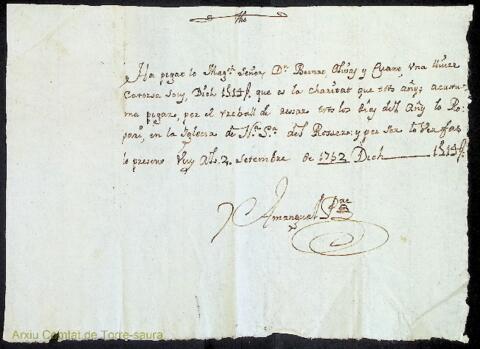 Jhs
Ha pagat lo Magch. Señor Dn. Bernat Olives y Cuare, una lliura
Catorse sous, Dich 1l14s. que es la Charitat que tots añys acustu-
ma pagar, per el treball de resar tots los dies del Añy lo Ro-
sari, en la Iglesia de Nra. Sra. del Rossero; y per ser lo Ver fas
lo present Vuy Als. 2. Setembre de 1752 Dich 1l14s.
Amangual Pre
Arxiu Comtat de Torre-saura